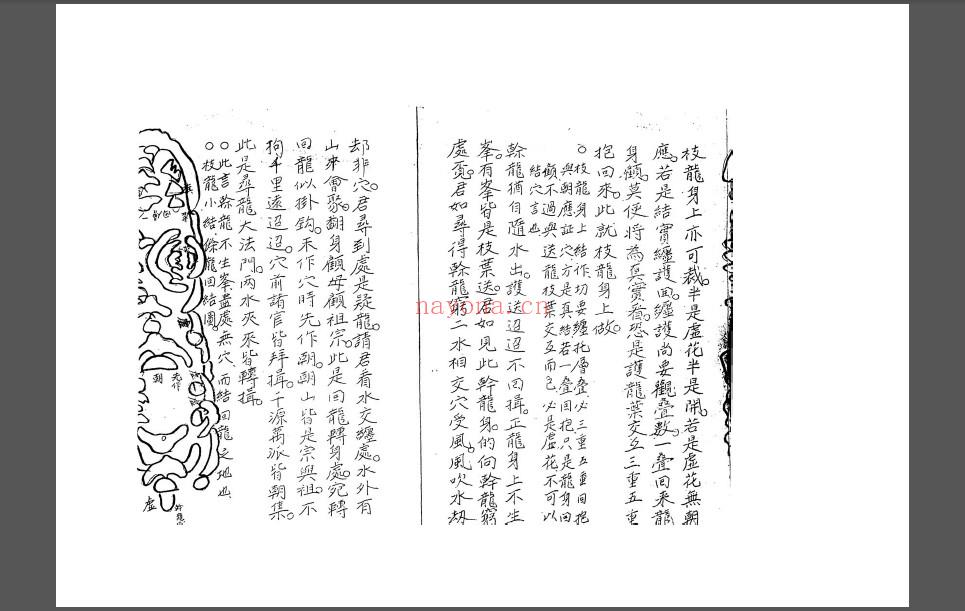 枝龍身上亦可裁。半是虛花半是開。若是虛花無朝
應。若是結實纏護回。纏護尚要觀疊數。一疊回來龍
身顧。莫便將為真實看。恐是護龍葉交互。三重五重
抱回來。此就枝龍身上做。
○枝龍身上結作切要纏托層疊。必三重五重回抱
與朝應証穴。方是真結。若一疊回抱。只是龍身回
顧。不過與送龍枝葉交互而已。必是虛花。不可以
結穴言也。
幹龍猶自隨水出。護送迢迢不回揖。正龍身上不生
峯。有峯皆是枝葉送。君如見此幹龍身。的向幹龍窮
處覓。君如尋得幹龍窮。二水相交穴受風。風吹水劫
却非穴。君尋到處是疑龍。請君看水交纏處。水外有
山來會聚。翻身顧母顧祖宗。此是回龍轉身處。宛轉
回龍似掛鈎。未作穴時先作朝。朝山皆是宗與祖。不
拘千里遠迢迢。穴前諸官皆拜揖。千源萬派皆朝集。
此是尋龍大法門。兩水夾來皆轉揖。
○此言幹龍不生峯盡處無穴。而結回龍之地也
○枝龍小結幹龍回結圖。
先作
朝
虛
nayona.cn